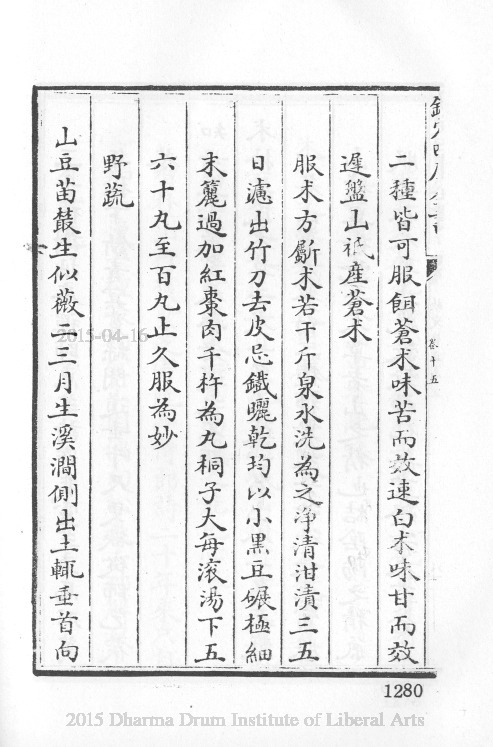 二種皆可服餌蒼术味苦而效速白术味甘而效
遲盤山祇產蒼术
服术方斸术若干斤泉水洗為之淨清泔漬三五
日濾出竹刀去皮忌鐵曬乾均以小黑豆碾極細
末籭過加紅棗肉千杵為丸桐子大每滚湯下五
六十丸至百丸止久服為妙
野蔬
山豆苗叢生似薇二三月生溪澗側出土輒垂首向
卷十五
2015-04-16
1280
2015 Dharma Drum Institute of Liberal Arts